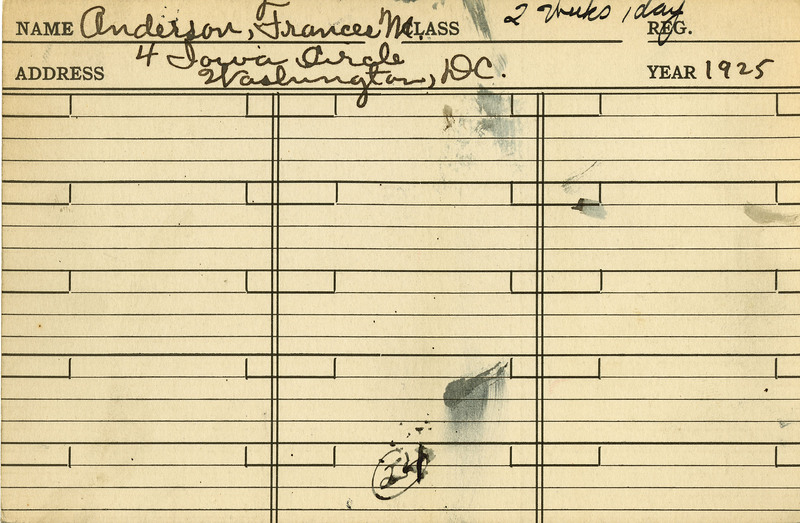 NAME Anderson, Frances M. CLASS 2 Weeks 1 day REG.
ADDRESS 4 Iowa Circle
Washington, D.C. YEAR 1925
24